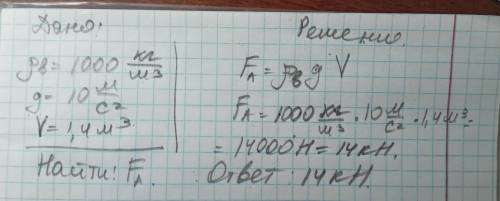 Дано:
ρв = 1000 кг/м3
g = 10 м/с2
V = 1,4 м3
Найти: FA.
Решение.
FA = ρв g V
FA = 1000 кг/м3 · 10 м/с2 · 1,4 м3 =
= 14000 Н = 14 кН.
Ответ: 14 кН.